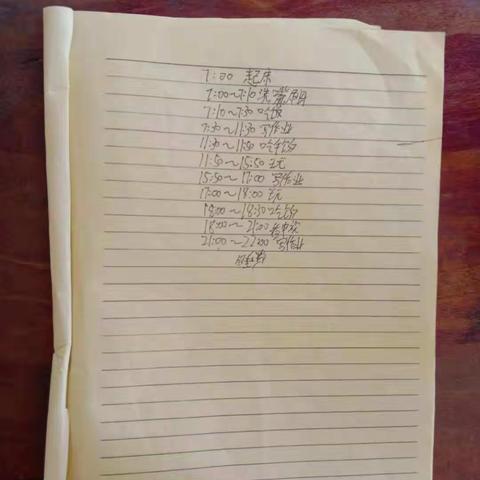 7:00 起床
7:00~7:10 洗嘴
7:10~7:30 吃饭
7:30~11:30 写作业
11:30~11:50 吃午饭
11:50~15:50 玩
15:50~17:00 写作业
17:00~18:00 玩
18:00~18:30 吃饭
18:00~21:00 看电视
21:00~22:00 写作业
睡觉